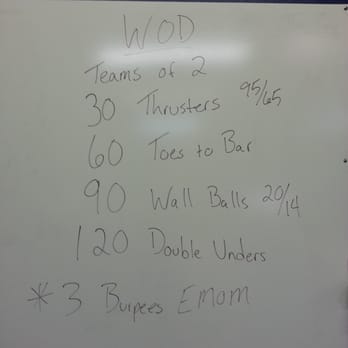 WOD
Teams of 2
30 Thrusters 95/65
60 Toes to Bar
90 Wall Balls 20/14
120 Double Unders
*3 Burpees EMOM